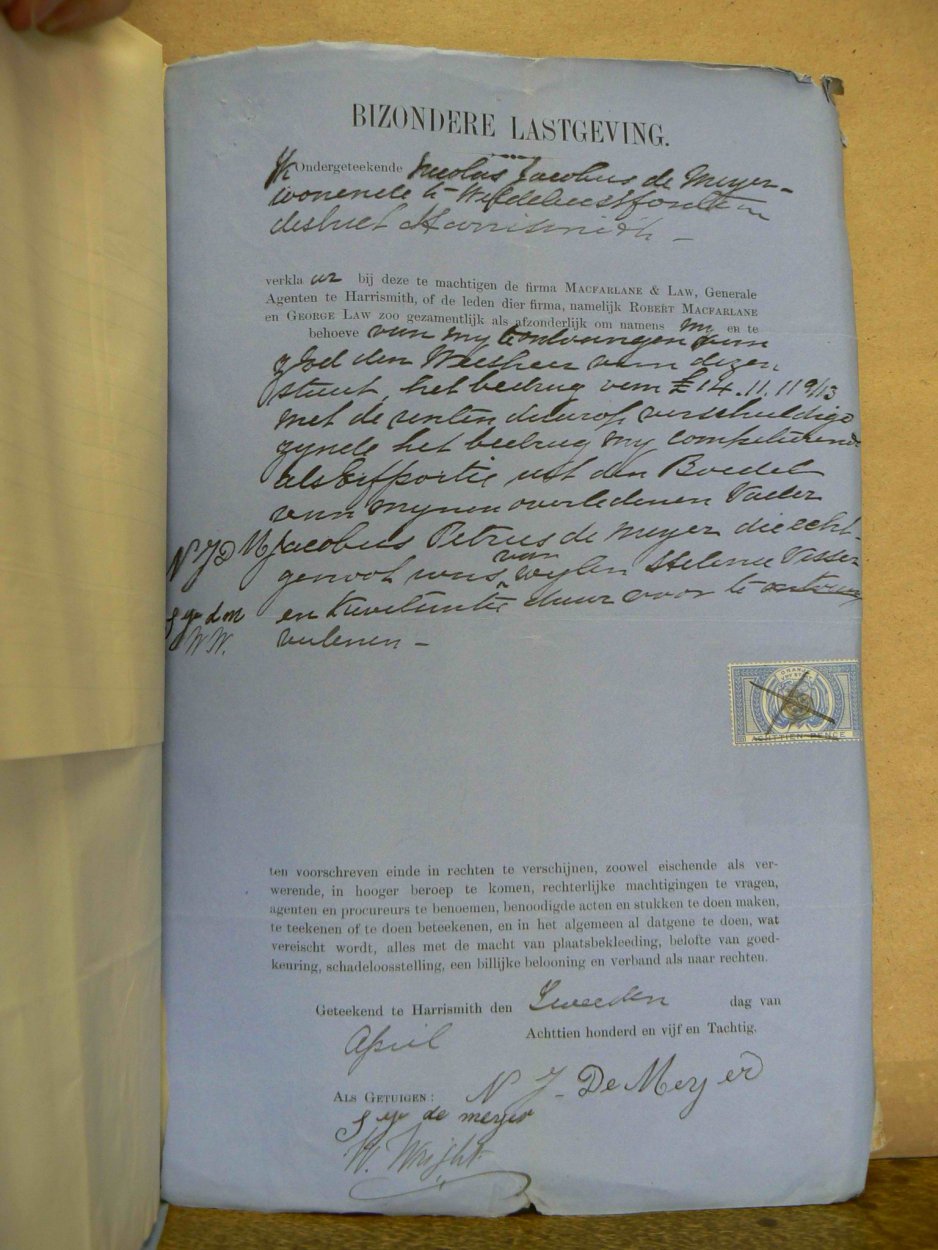 BIZONDERE LASTGEVING.
Ik Ondergeteekende Nicolas Jacobus de Meyer
wonende te
district Harrismith
verklaar bij deze te machtigen de firma MACFARLANE & LAW, Generale
Agenten te Harrismith, of de leden dier firma, namelijk ROBERT MACFARLANE
en GEORGE LAW zoo gezamentlijk als afzonderlijk om namens my en te
behoeve van my te ontvangen van
den Weesheer van dezen
staat, het bedrag van £14.11.11 9/13
met de renten daarop verschuldigd
zynde het bedrag my competerend
als Erfportie uit den Boedel
van mynen overledenen Vader
N J D M Jacobus Petrus de Meyer die echt-
genoot was van wylen Helena Visser
en kwitantie daar voor te
verlenen -
W W.
ORANJE
ACHTTIEN PENCE
ten voorschreven einde in rechten te verschijnen, zoowel eischende als ver-
werende, in hooger beroep te komen, rechterlijke machtigingen te vragen,
agenten en procureurs te benoemen, benoodigde acten en stukken te doen maken,
te teekenen of te doen beteekenen, en in het algemeen al datgene te doen, wat
vereischt wordt, alles met de macht van plaatsbekleeding, belofte van goed-
keuring, schadeloosstelling, een billijke belooning en verband als naar rechten.
Geteekend te Harrismith den Tweeden dag van
April Achttien honderd en vijf en Tachtig.
ALS GETUIGEN: N J. De Meyer
de meyer
W. Wright